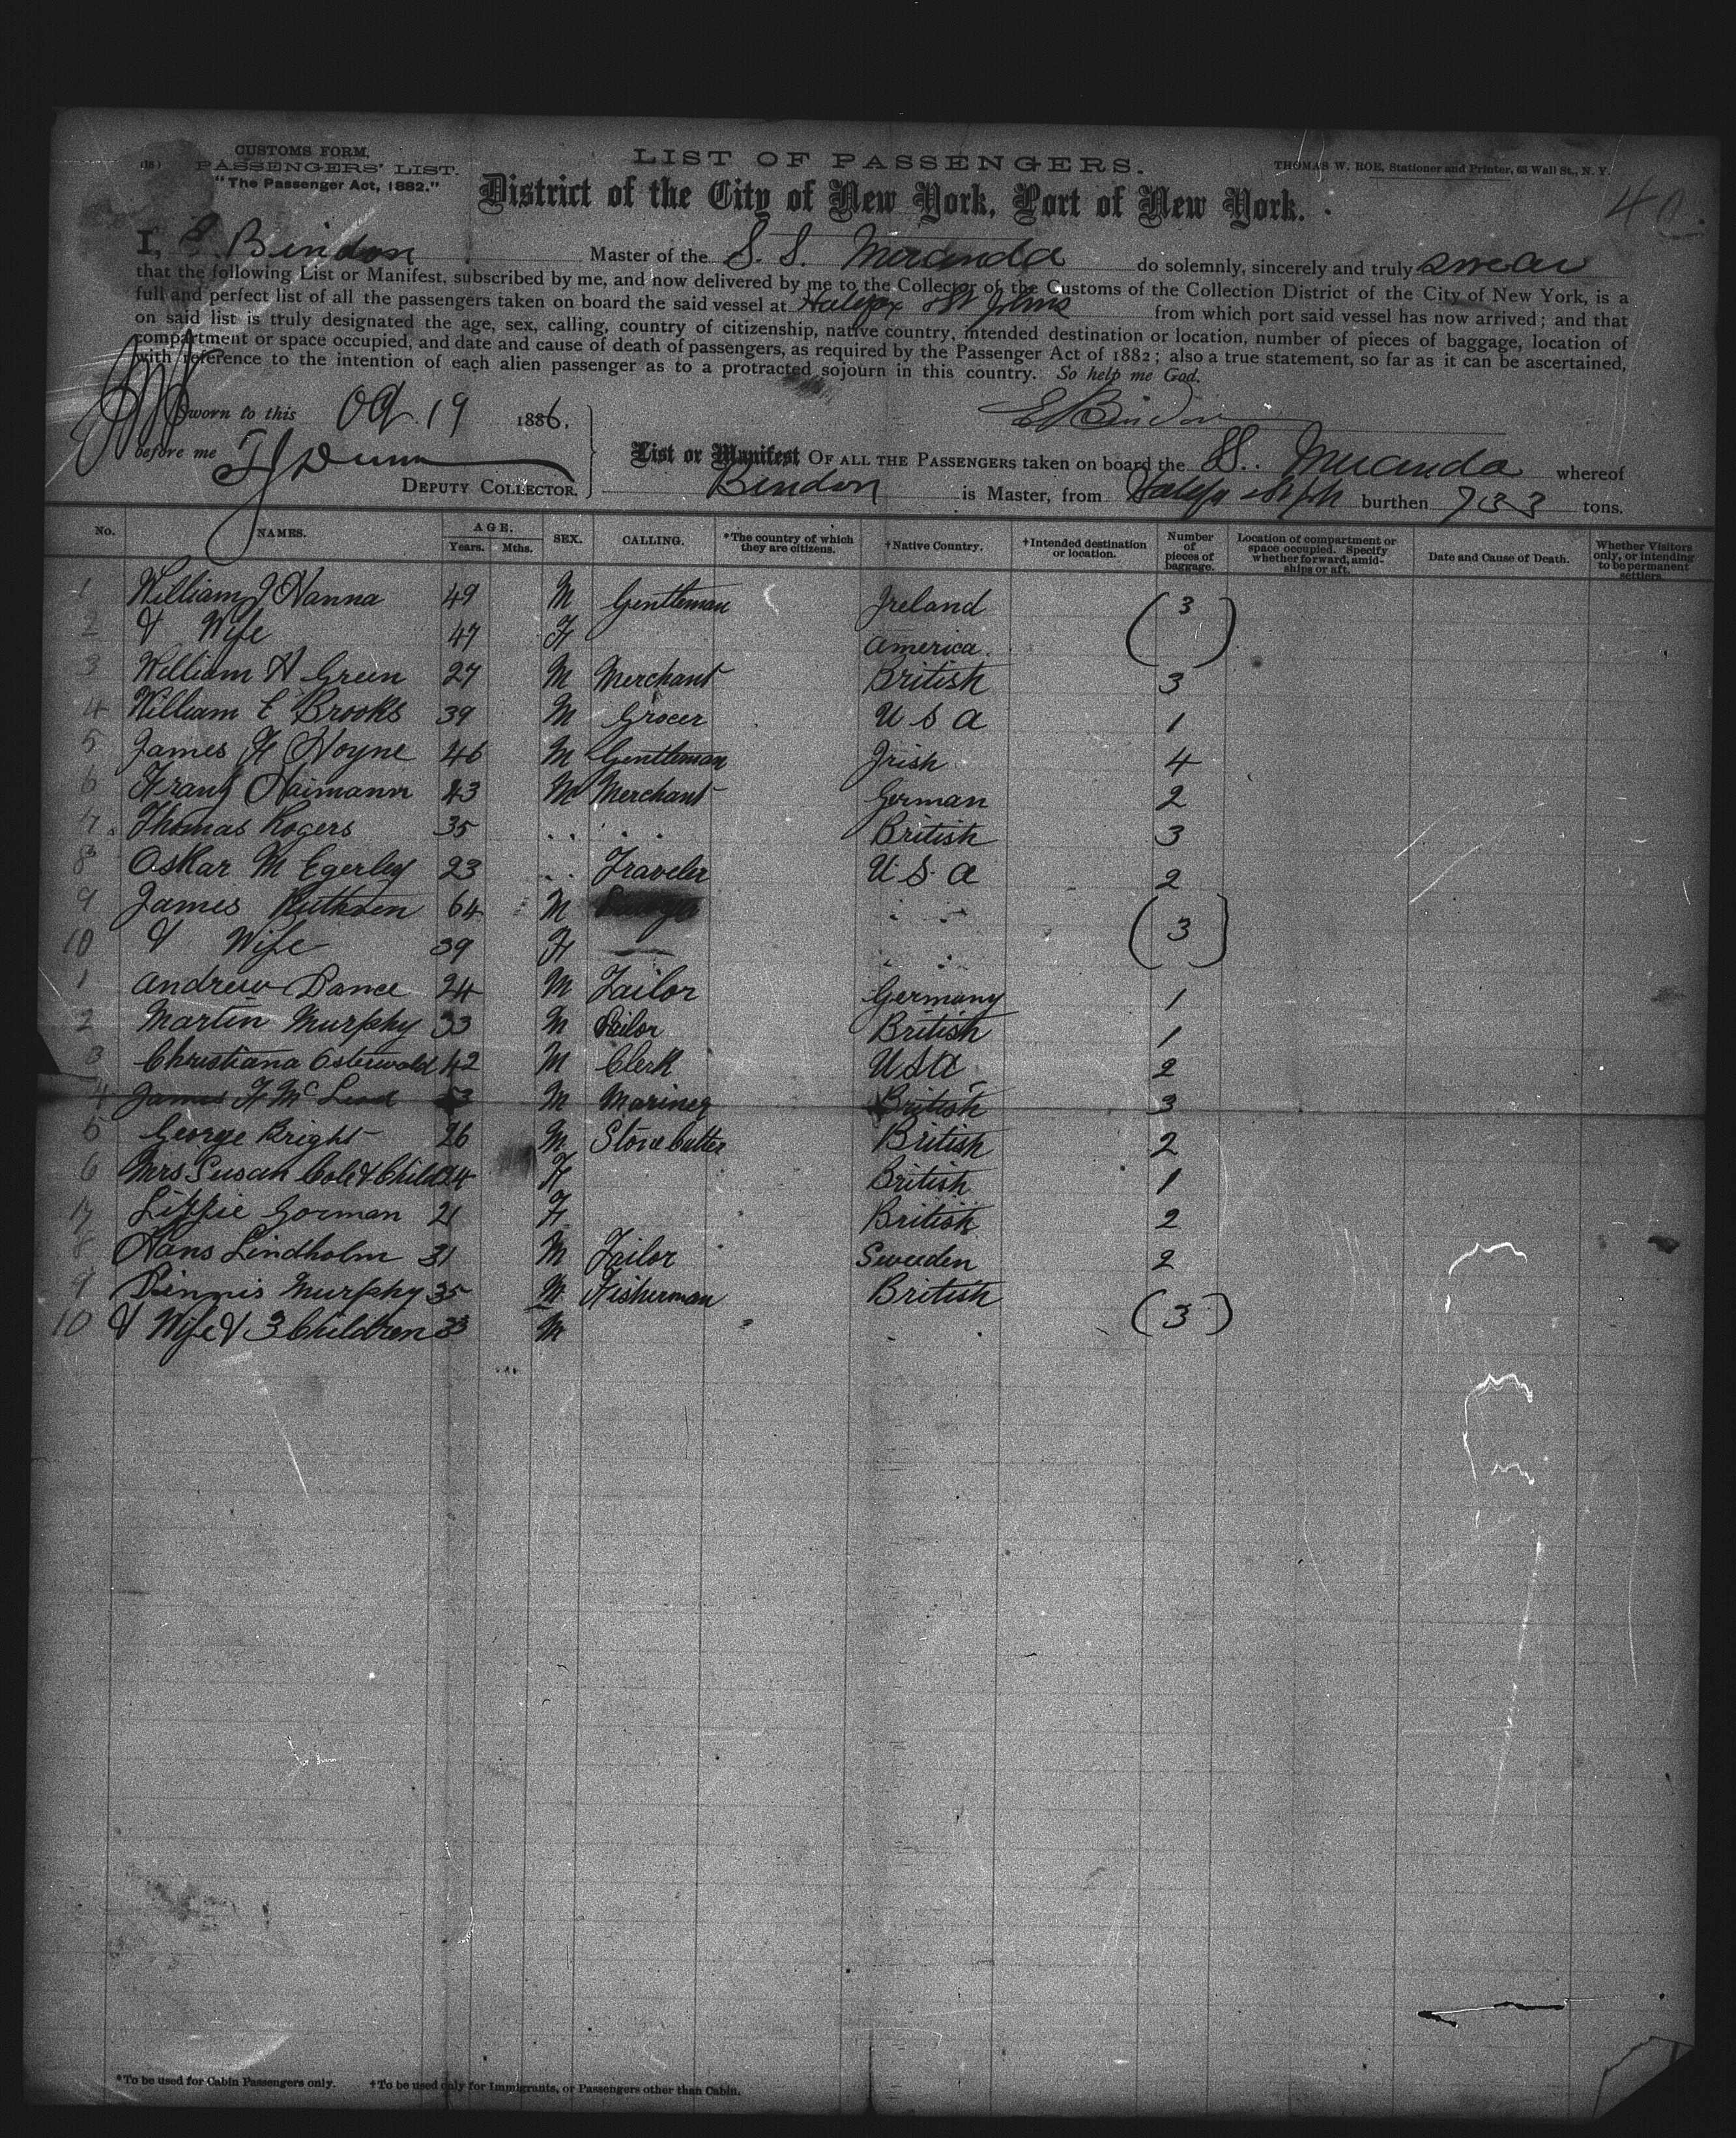 CUSTOMS FORM.
(18) PASSENGERS' LIST.
"The Passenger Act, 1882."
LIST OF PASSENGERS.
THOMAS W. ROE, Stationer and Printer, 63 Wall St., N. Y.
District of the City of New York, Port of New York.
I, E. Bindon Master of the S. S. Miranda do solemnly, sincerely and truly swear
that the following List or Manifest, subscribed by me, and now delivered by me to the Collector of the Customs of the Collection District of the City of New York, is a
full and perfect list of all the passengers taken on board the said vessel at Halifax & St Johns from which port said vessel has now arrived; and that
on said list is truly designated the age, sex, calling, country of citizenship, native country, intended destination or location, number of pieces of baggage, location of
compartment or space occupied, and date and cause of death of passengers, as required by the Passenger Act of 1882; also a true statement, so far as it can be ascertained,
with reference to the intention of each alien passenger as to a protracted sojourn in this country. So help me God.
Sworn to this Oct 19 1886.
E Bindon
before me
DEPUTY COLLECTOR.
List or Manifest OF ALL THE PASSENGERS taken on board the SS. Miranda whereof
Bindon is Master, from Halifax & St Johns burthen 733 tons.
No. NAMES. AGE. Years. Mths. SEX. CALLING. *The country of which they are citizens. †Native Country. †Intended destination or location. Number of pieces of baggage. Location of compartment or space occupied. Specify whether forward, amidships or aft. Date and Cause of Death. Whether Visitors only, or intending to be permanent settlers.
1 William J Hanna 49 M Gentleman Ireland (3)
2 & Wife 47 F America.
3 William H Green 27 M Merchant British 3
4 William E Brooks 39 M Grocer U S A 1
5 James H Hoyne 46 M Gentleman Irish 4
6 Franz Haimann 43 M Merchant German 2
7 Thomas Rogers 35 . . . . British 3
8 Oskar M Egerley 23 . . Traveler U. S. A 2
9 James Ruthven 64 M . . (3)
10 & Wife 39 F — . .
1 Andrew Dance 24 M Tailor Germany 1
2 Martin Murphy 33 M Sailor British 1
3 Christiana Osterwold 42 M Clerk USA 2
4 James H Mc Leod 53 M Mariner British 3
5 George Bright 26 M Stone Cutter British 2
6 Mrs Susan Cole & Child 24 F British 1
17 Lizzie Gorman 21 F British 2
8 Hans Lindholm 31 M Tailor Sweeden 2
9 Dennis Murphy 35 M Fisherman British (3)
10 & Wife & 3 Children 33 M
*To be used for Cabin Passengers only. †To be used only for Immigrants, or Passengers other than Cabin.